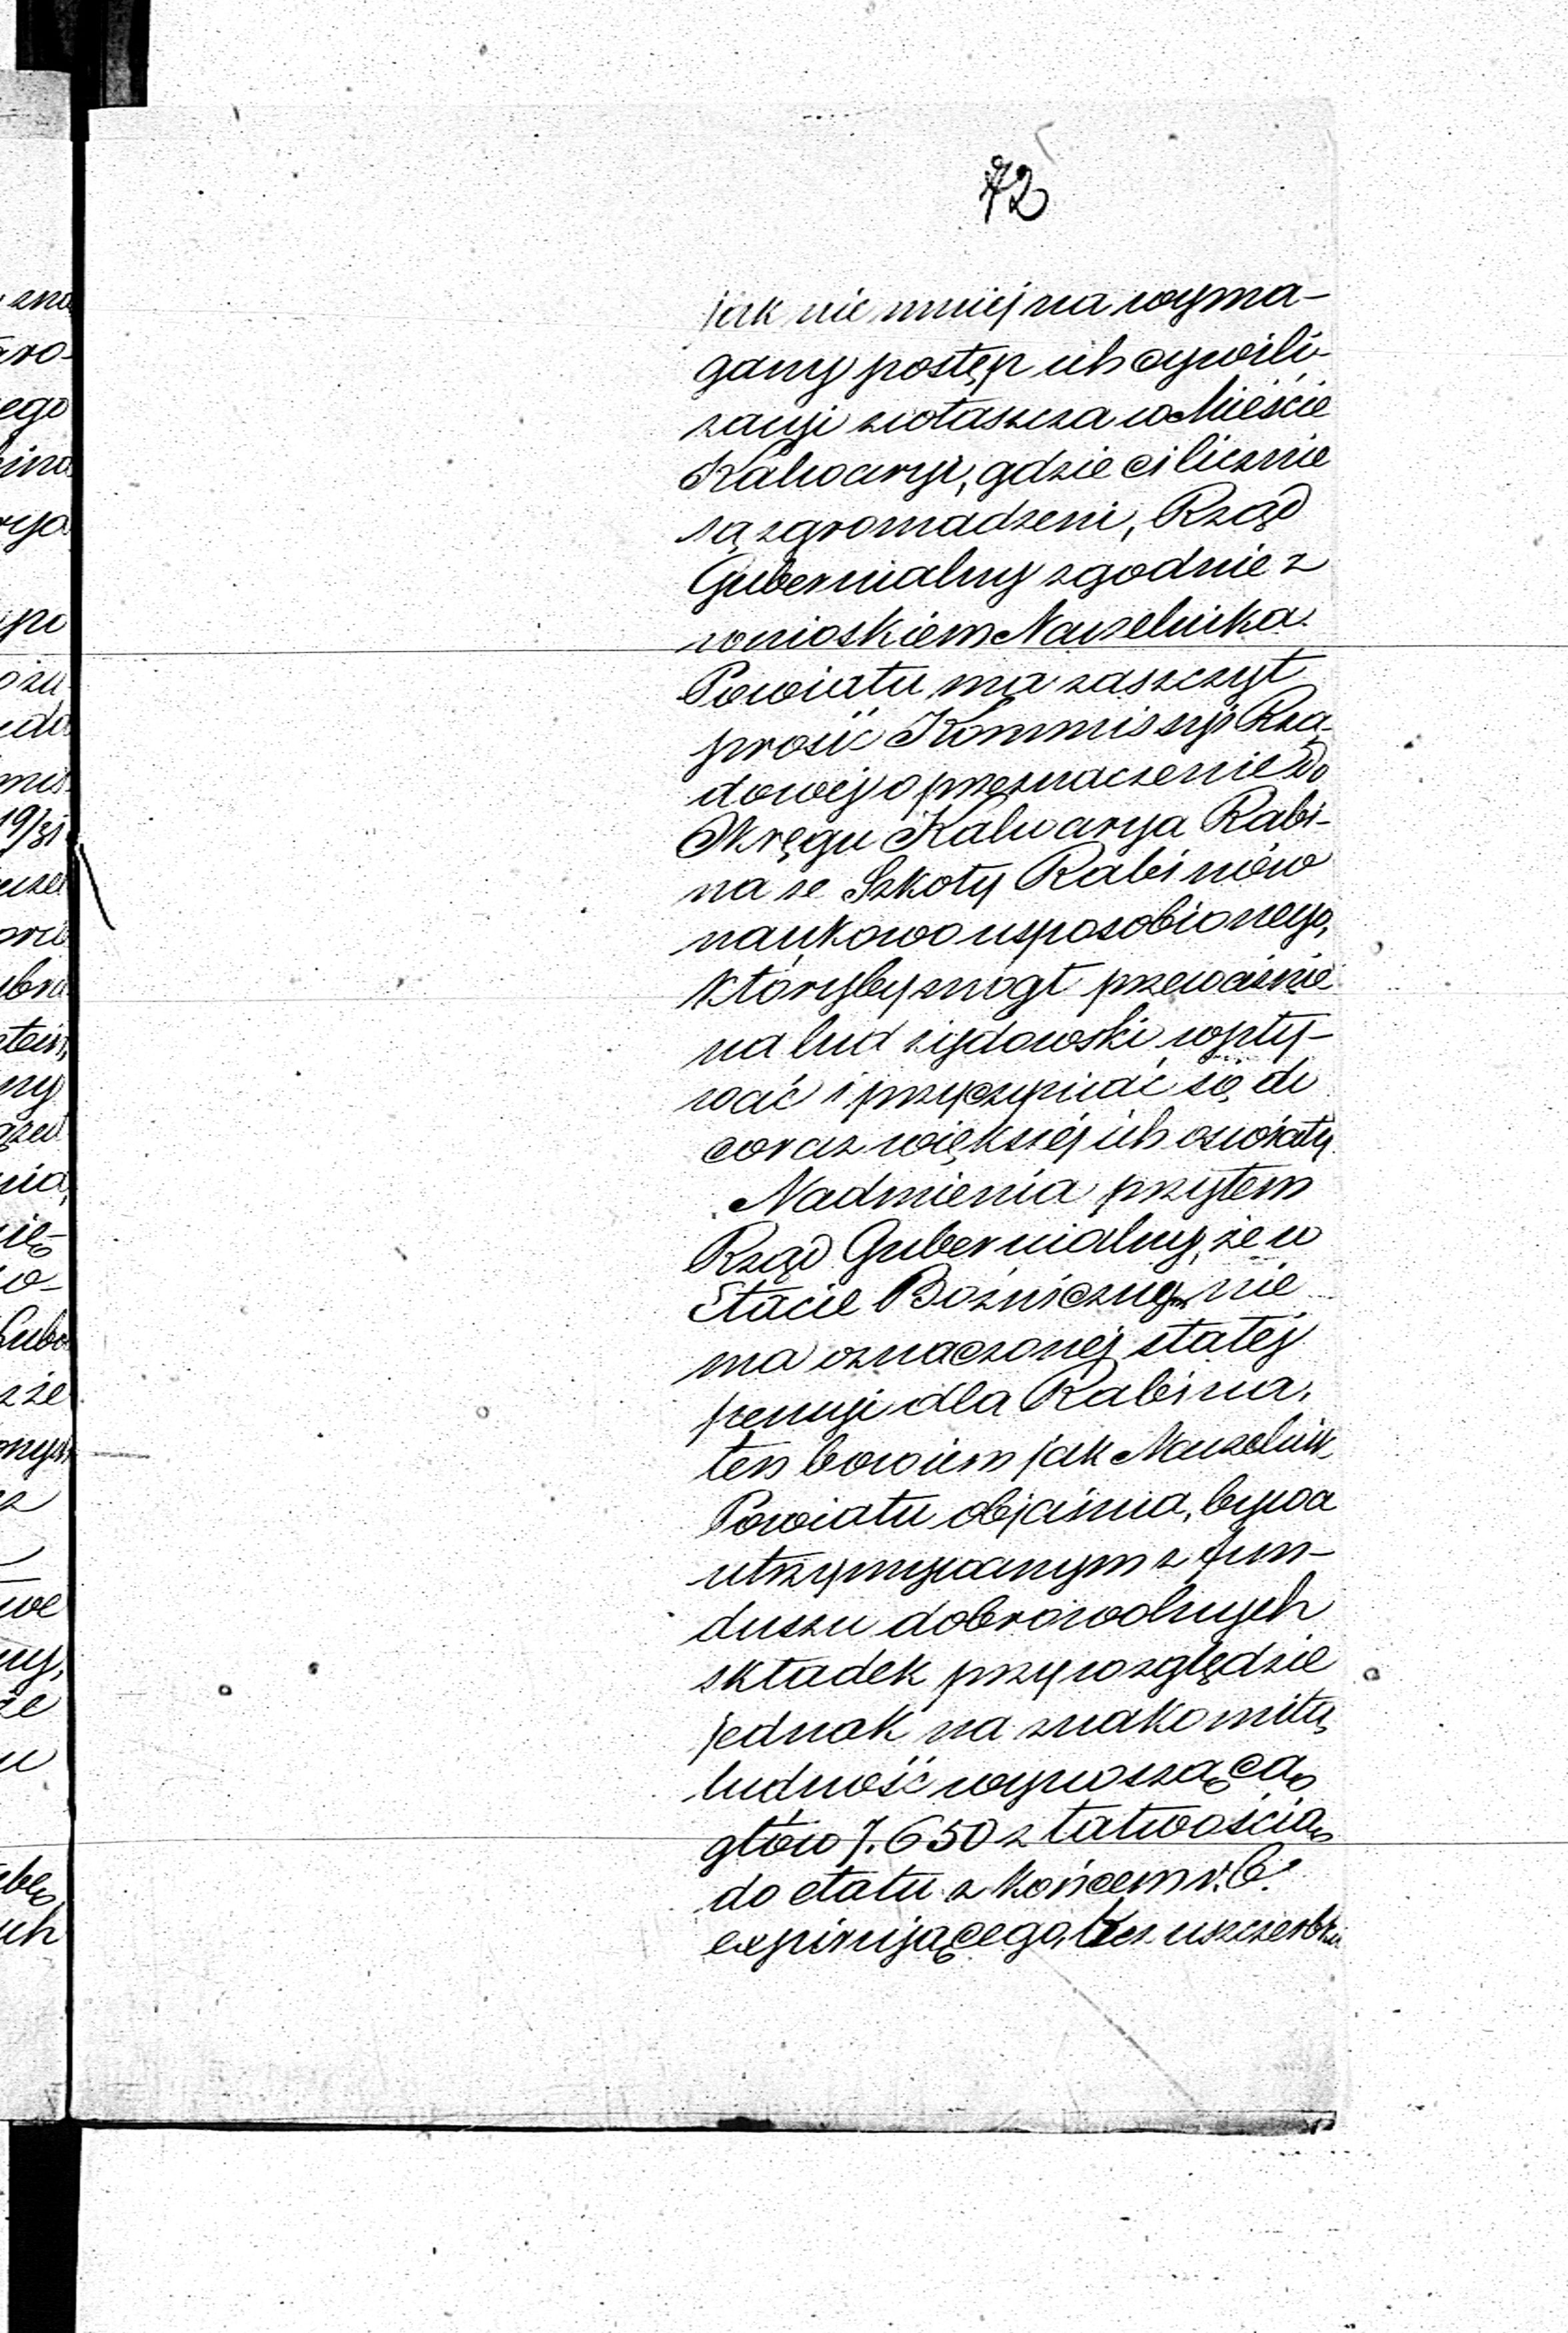 72
jak nie mniej na wyma-
gany postęp ich cywili-
zacyi zwłaszcza w Mieście
Kalwaryi, gdzie ci licznie
są zgromadzeni, Rząd
Gubernialny zgodnie z
wnioskiem Naczelnika
Powiatu ma zaszczyt
prosić Kommissyi Rzą-
dowéj o przeznaczenie do
Okręgu Kalwarya Rabi-
na ze Szkoły Rabinów
naukowo usposobionego,
któryby mógł przeważnie
na lud żydowski wpły-
wać i przyczyniać się do
coraz większéj ich oswiaty.
Nadmienia przytem
Rząd Gubernialny, że w
Etacie Bożniczym nie
ma oznaczonéj stałéj
pensyi dla Rabina,
ten bowiem jak Naczelnik
Powiatu objaśnia, bywa
utrzymywanym z fun-
duszu dobrowolnych
składek przy względzie
jednak na znakomitą
ludność wynoszącą
głów 7.650 z łatwością
do etatu z końcem r. b.
expirującego, bez uszczerbku
zna
aro-
ego
rya
po
ożu
edo
mis
19/31
ny
nia,
że
we
ny,
że
u
ich